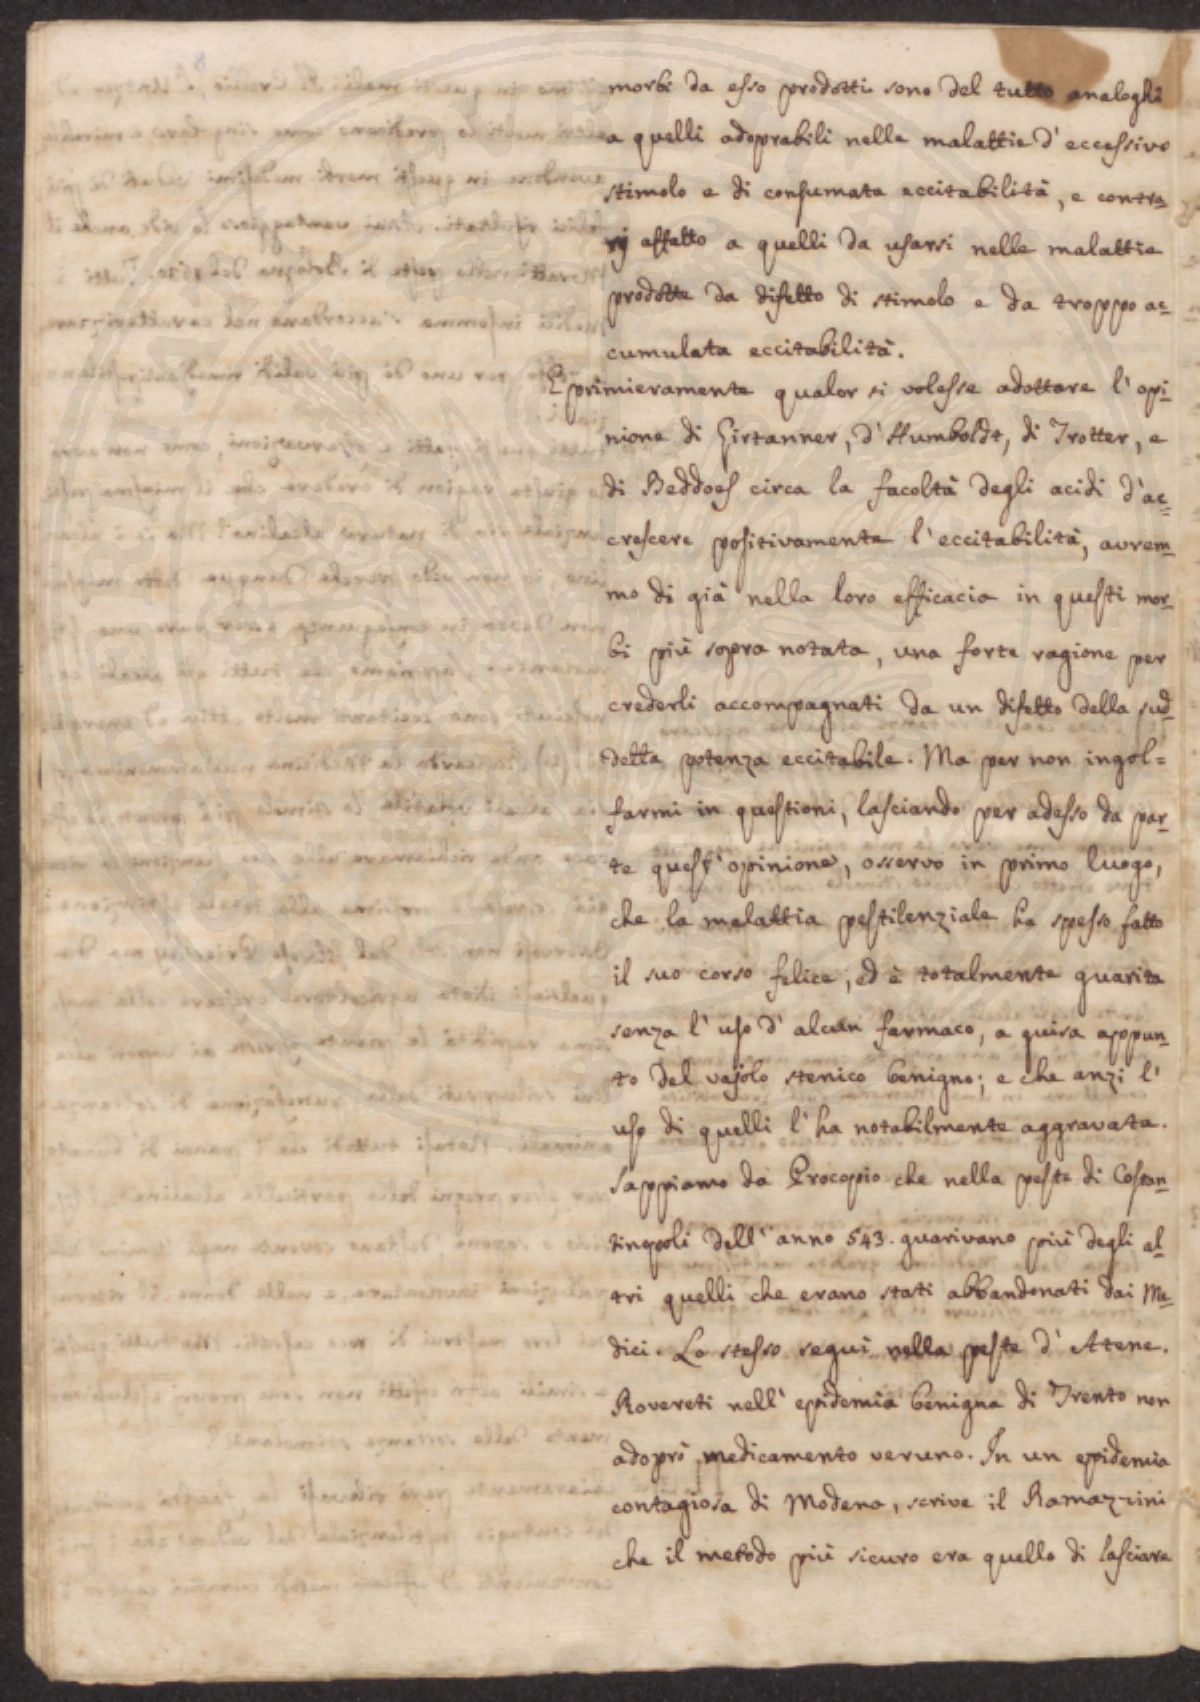 morbi da esso prodotti sono del tutto analoghi
a quelli adoprabili nelle malattie d'eccessivo
stimolo e di consumata eccitabilità, e contra-
rj affatto a quelli da usarsi nelle malattie
prodotte da difetto di stimolo e da troppo ac-
cumulata eccitabilità.
E primieramente qualor si volesse adottare l'opi-
nione di Girtanner, d'Humboldt, di Trotter, e
di Beddoes circa la facoltà degli acidi d'ac-
crescere positivamente l'eccitabilità, avrem-
mo di già nella loro efficacia in questi mor-
bi più sopra notata, una forte ragione per
crederli accompagnati da un difetto della sud-
detta potenza eccitabile. Ma per non ingol=
farmi in questioni, lasciando per adesso da par-
te quest'opinione, osservo in primo luogo,
che la malattia pestilenziale ha spesso fatto
il suo corso felice, ed è totalmente guarita
senza l'uso d'alcun farmaco, a guisa appun-
to del vajolo stenico benigno; e che anzi l'
uso di quelli l'ha notabilmente aggravata.
Sappiamo da Procopio che nella peste di Costan-
tinopoli dell'anno 543. guarivano più degli al-
tri quelli che erano stati abbandonati dai Me-
dici. Lo stesso seguì nella peste d'Atene.
Rovereti nell'epidemia benigna di Trento non
adoprò medicamento veruno. In un epidemia
contagiosa di Modena, scrive il Ramazzini
che il metodo più sicuro era quello di lasciare